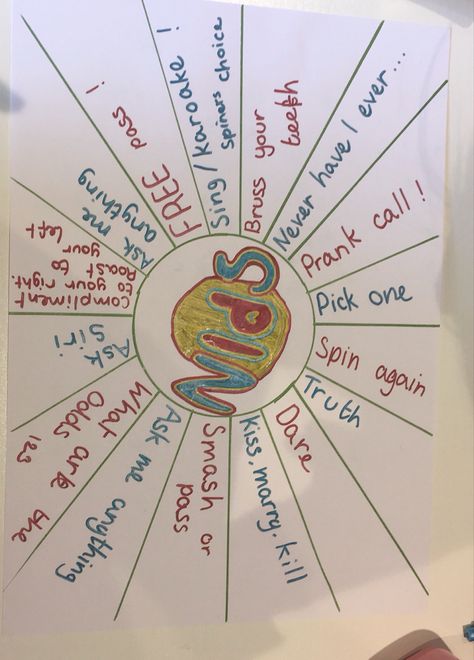 SPIN
FREE pass !
Sing/Karoake !
spiners choice
Bruss your
teeth
Never have I ever...
Prank call!
Pick one
Spin again
Truth
Dare
Kiss, marry, kill
Smash or
pass
Ask me anything
What are the
Odds
Ask
Siri
Compliment
to your right.
Roast to
your left
Ask me
anything